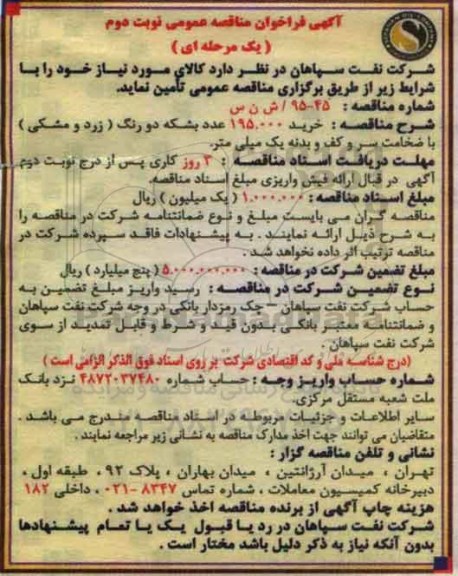 آگهی فراخوان مناقصه عمومی نوبت دوم
( یک مرحله ای )
شرکت نفت سپاهان در نظر دارد کالای مورد نیاز خود را با
شرایط زیر از طریق برگزاری مناقصه عمومی تأمین نماید.
شماره مناقصه : ۴۵-۹۵ / ش ن س
شرح مناقصه : خرید ۱۹۵.۰۰۰ عدد بشکه دو رنگ ( زرد و مشکی )
با ضخامت سر و کف و بدنه یک میلی متر.
مهلت دریافت اسناد مناقصه : ۳ روز کاری پس از درج نوبت دوم
آگهی در قبال ارائه فیش واریزی مبلغ اسناد مناقصه.
مبلغ اسناد مناقصه : ۱.۰۰۰.۰۰۰ ( یک میلیون ) ریال
مناقصه گران می بایست مبلغ و نوع ضمانتنامه شرکت در مناقصه را
به شرح ذیل ارائه نمایند . به پیشنهادات فاقد سپرده شرکت در
مناقصه ترتیب اثر داده نخواهد شد .
مبلغ تضمین شرکت در مناقصه : ۵.۰۰۰.۰۰۰.۰۰۰ ( پنج میلیارد ) ریال
نوع تضمین شرکت در مناقصه : رسید واریز مبلغ تضمین به
حساب شرکت نفت سپاهان – چک رمزدار بانکی در وجه شرکت نفت سپاهان
و ضمانتنامه معتبر بانکی بدون قید و شرط و قابل تمدید از سوی
شرکت نفت سپاهان .
(درج شناسه ملی و کد اقتصادی شرکت بر روی اسناد فوق الذکر الزامی است )
شماره حساب واریز وجه : حساب شماره ۴۸۷۲۰۳۷۴۸۰ نزد بانک
ملت شعبه مستقل مرکزی.
سایر اطلاعات و جزئیات مربوطه در اسناد مناقصه مندرج می باشد .
متقاضیان می توانند جهت اخذ مدارک مناقصه به نشانی زیر مراجعه نمایند .
نشانی و تلفن مناقصه گزار :
تهران ، میدان آرژانتین ، میدان بهاران ، پلاک ۹۲ ، طبقه اول ،
دبیرخانه کمیسیون معاملات ، شماره تماس ۸۳۴۷-۰۲۱ ، داخلی ۱۸۲
هزینه چاپ آگهی از برنده مناقصه اخذ خواهد شد .
شرکت نفت سپاهان در رد یا قبول یک یا تمام پیشنهادها
بدون آنکه نیاز به ذکر دلیل باشد مختار است .